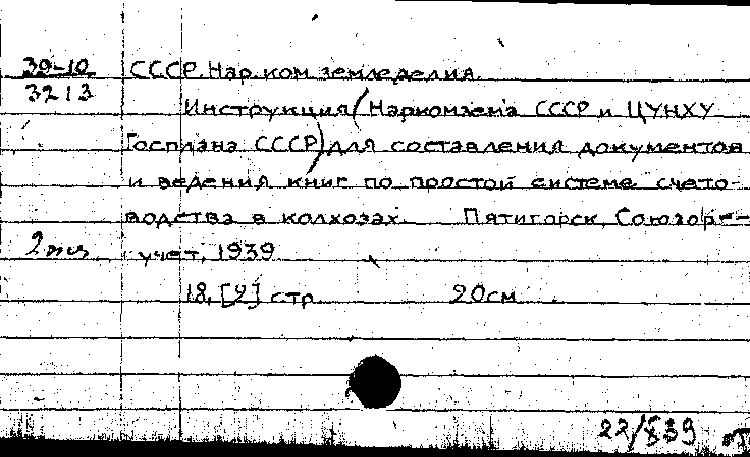 39-10 СССР. Нар. ком земледелия.
3213
Инструкция (Наркомзема СССР и ЦУНХУ
Госплана СССР) для составления документов
и ведения книг по простой системе счето-
водства в колхозах. Пятигорск, Союзорг-
2 экз учет, 1939
18, [2] стр. 20см.
22/X 39